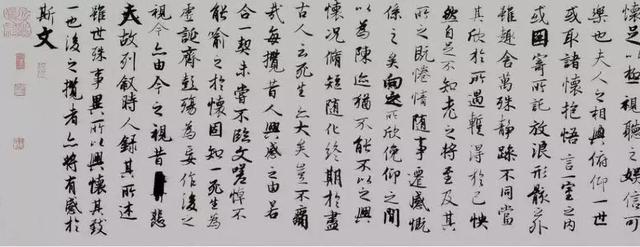 懷足以極視聽之娛信可
樂也夫人之相與俯仰一世
或取諸懷抱悟言一室之內
或因寄所託放浪形骸之外
雖趣舍萬殊靜躁不同當
其欣於所遇蹔得於己怏
然自足不知老之將至及其
所之既惓情隨事遷感慨
係之矣向之所欣俛仰之間
以為陳迹猶不能不以之興
懷況脩短隨化終期於盡
古人云死生亦大矣豈不痛
哉每攬昔人興感之由若
合一契未嘗不臨文嗟悼不
能喻之於懷固知一死生為
虛誕齊彭殤為妄作後之
視今亦由今之視昔悲
夫故列敘時人錄其所述
雖世殊事異所以興懷其致
一也後之攬者亦將有感於
斯文